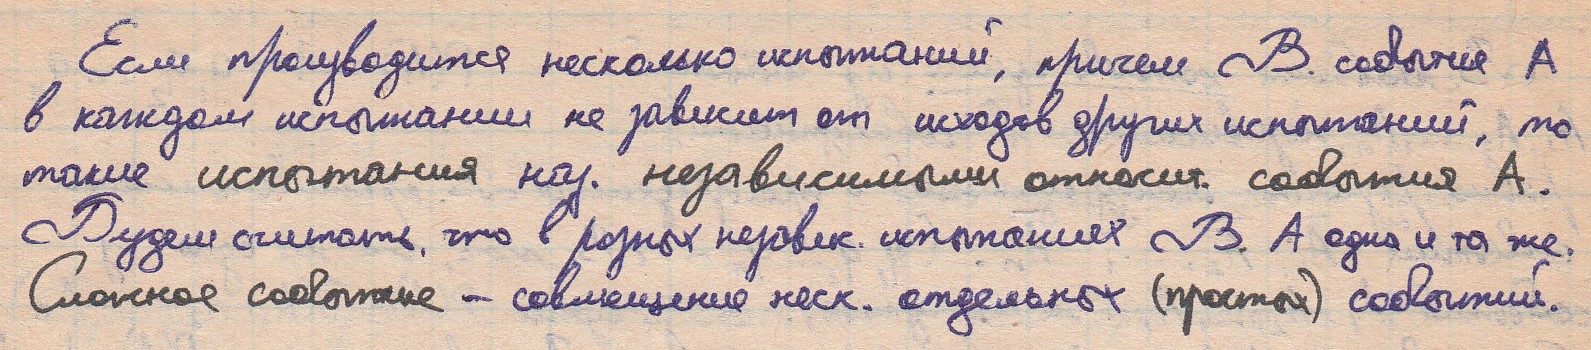 Если производится несколько испытаний, причем В. событие А
в каждом испытании не зависит от исходов других испытаний, то
такие испытания наз. независимыми относит. события А.
Будем считать, что в разных независ. испытаниях В. А одна и та же.
Сложное событие – совмещение неск. отдельных (простых) событий.